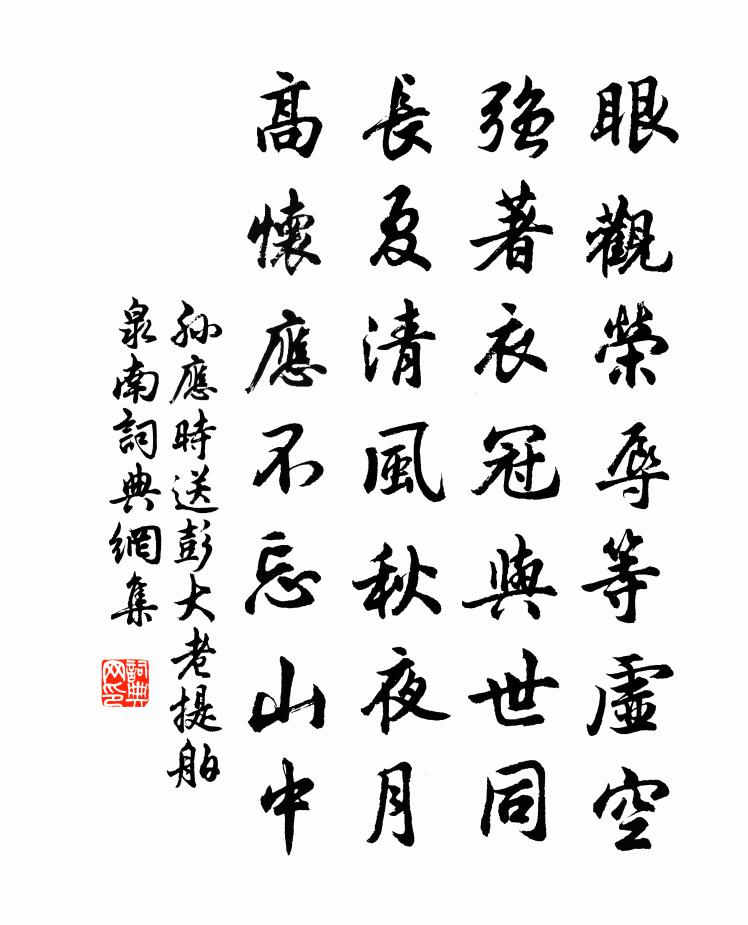 眼觀榮辱等虛空
強著衣冠與世同
長夏清風秋夜月
高懷應不忘山中
孫應時送彭大老提舶
泉南詞典網集
詞典網印